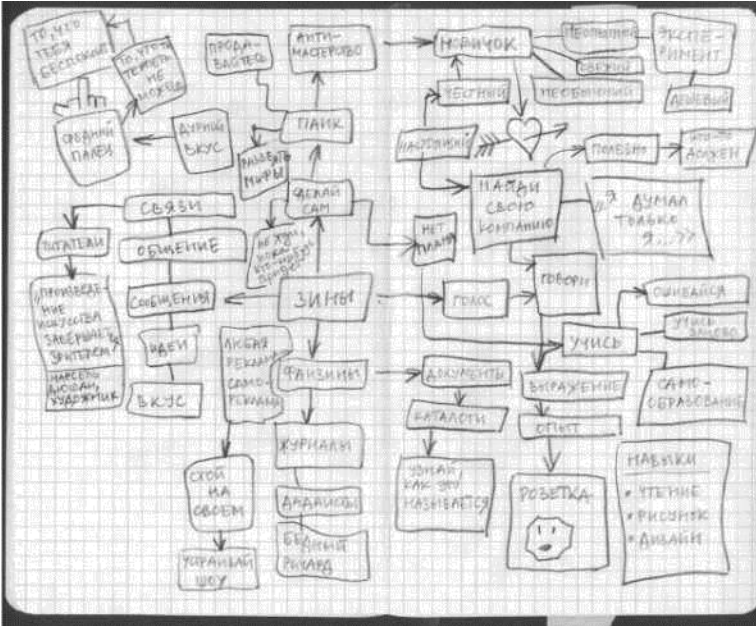 ТО, ЧТО
ТЕБЯ
БЕСПОКОИТ
ТО, ЧТО ТЫ
ТЕРПЕТЬ
НЕ
МОЖЕШЬ
СРЕДНИЙ
ПАЛЕЦ
ДУРНОЙ
ВКУС
ПРОДА-
ВАЙТЕСЬ
АНТИ-
МАСТЕРСТВО
ПАНК
РАЗРУШЬ
МИФЫ
СДЕЛАЙ
САМ
НЕ ЖДИ,
ПОКА
КТО-НИБУДЬ
СВЯЗИ
ЧИТАТЕЛИ
ОБЩЕНИЕ
СООБЩЕНИЯ
ИДЕИ
ВКУС
"ПРОИЗВЕДЕ-
НИЕ
ИСКУССТВА
ЗАВЕРШАЕТСЯ
ЗРИТЕЛЕМ"
МАРСЕЛЬ
ДЮШАН,
ХУДОЖНИК
ЗИНЫ
ЛЮБАЯ
РЕКЛАМА -
САМО-
РЕКЛАМА
ФАНЗИНЫ
ЖУРНАЛЫ
ДАДАИСТЫ
БЕДНЫЙ
РИЧАРД
СТОЙ
НА
СВОЕМ
УСТРАИВАЙ
ШОУ
НОВИЧОК
НЕОПЫТНЫЙ
СВЕЖИЙ
НЕОБЫЧНЫЙ
ЭКСПЕ-
РИМЕНТ
ДЕШЕВЫЙ
ЧЕСТНЫЙ
НАСТОЯЩИЙ
НАЙДИ
СВОЮ
КОМПАНИЮ
ПОЛЕЗНО
ДОЛЖЕН
"Я ДУМАЛ
ТОЛЬКО
Я...>>
НЕТ
ПЛАНА
ГОЛОС
ГОВОРИ
УЧИСЬ
ОШИБАЙСЯ
УЧИСЬ
ЗАНОВО
САМО-
ОБРАЗОВАНИЕ
ДОКУМЕНТЫ
КАТАЛОГИ
УЗНАЙ,
КАК ЭТО
НАЗЫВАЕТСЯ
ВЫРАЖЕНИЕ
ОПЫТ
РОЗЕТКА
НАВЫКИ
• ЧТЕНИЕ
• РИСУНОК
• ДИЗАЙН